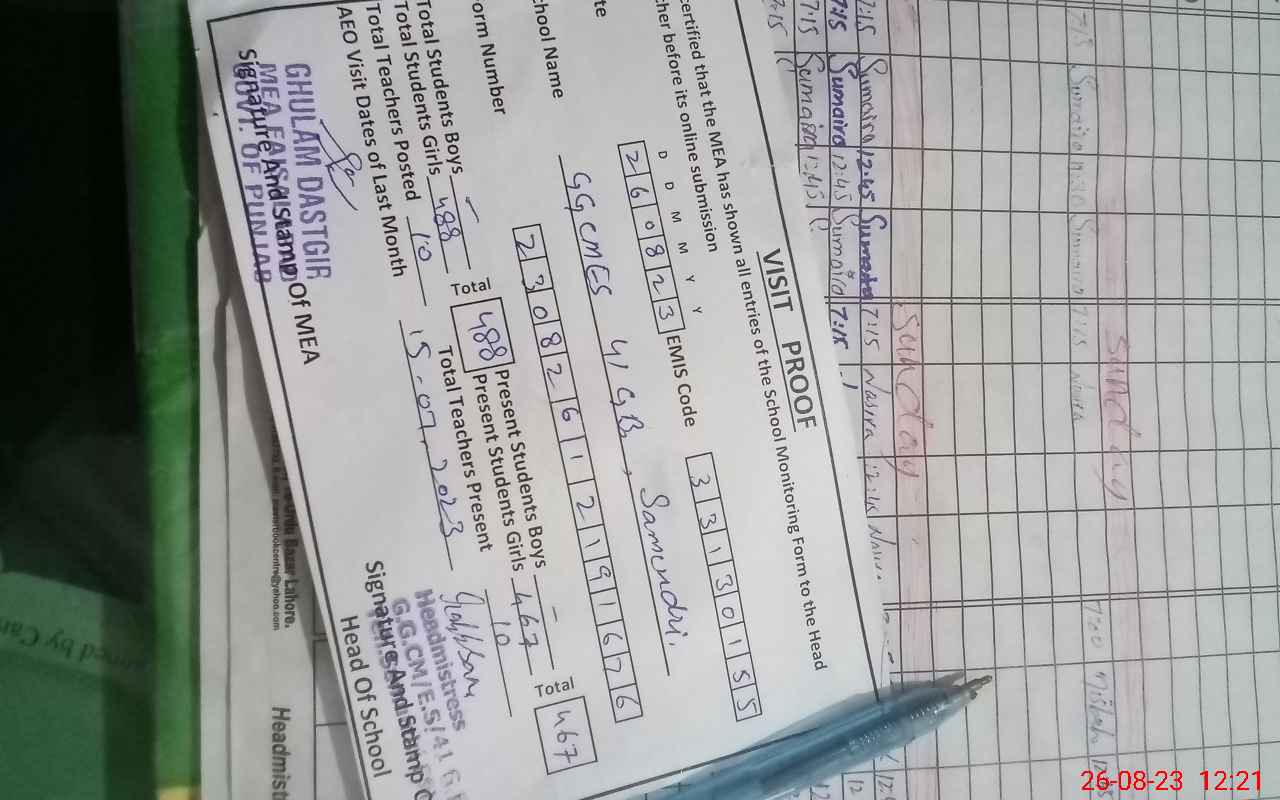 VISIT PROOF
certified that the MEA has shown all entries of the School Monitoring Form to the Head
cher before its online submission
D D M M Y Y
te 260823 EMIS Code 33130155
chool Name GGCMES 41 GB, Samundri.
orm Number 23082612191676
Total Students Boys - Total 488 Present Students Boys - Total 467
Total Students Girls 488 Present Students Girls 467
Total Teachers Posted 10 Total Teachers Present 10
AEO Visit Dates of Last Month 15-07-2023
GHULAM DASTGIR
MEA FAISALABAD
GOVT. OF PUNJAB
Signature And Stamp Of MEA
Headmistress
G.G.CM/E.S/41 G.B
Signature And Stamp O
Head Of School
Urdu Bazar Lahore.
Headmist
Sunday
Sunday
7:15 Sumaira 12:45 Sumaira 7:15
12:45 Sumaira 12:45 Sumaira 7:15 Nasira 12:45
7:15 Sumaira
26-08-23 12:21